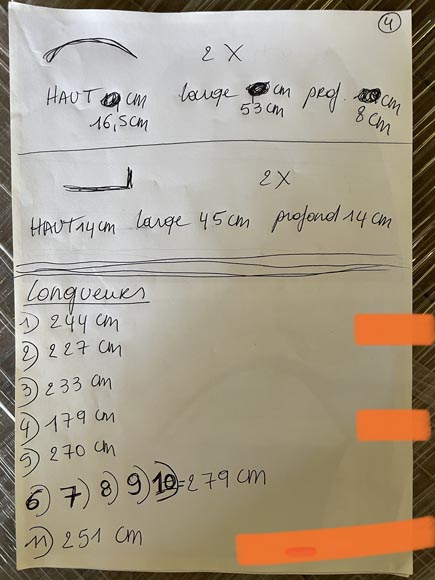 4
2 X
HAUT cm large cm prof. cm
16,5cm 53 cm 8 cm
2X
HAUT 14cm large 45 cm profond 14 cm
Longueurs
1) 244 cm
2) 227 cm
3) 233 cm
4) 179 cm
5) 270 cm
6) 7) 8) 9) 10) = 279 cm
11) 251 cm